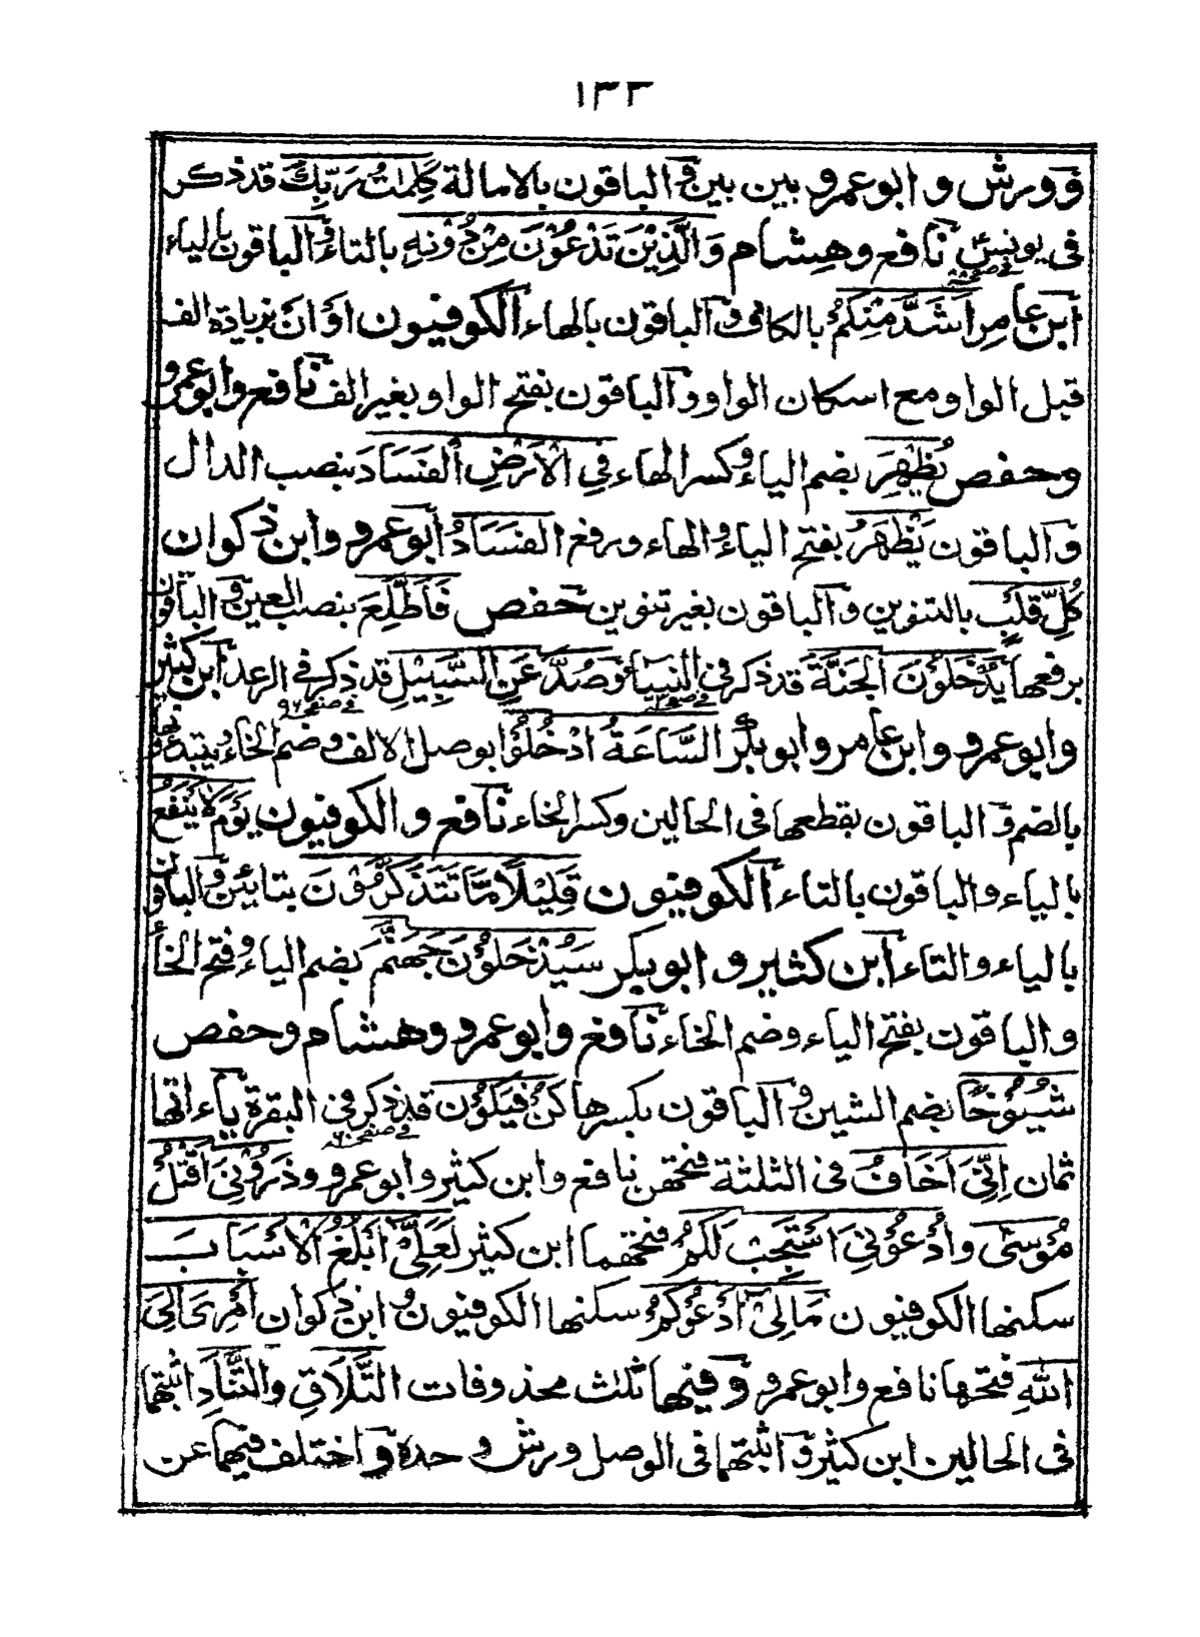 ١٣٣
وورش وابوعمرو بين بين والباقون بالامالة كَلِمٰتُ رَبِّكَ قد ذكر
فى يونس نافع وهشام وَالَّذِيْنَ تَدْعُوْنَ مِنْ دُوْنِهٖ بالتاء والباقون بالياء
فى صفحه ٨٨
ابن عامر اَشَدَّ مِنْكُمْ بالكاف والباقون بالهاء الكوفيون اَوْ اَنْ بزيادة الف
قبل الواو مع اسكان الواو والباقون بفتح الواو بغير الف نافع وابوعمرو
وحفص يُظْهِرَ بضم الياء وكسر الهاء فِي الْاَرْضِ الْفَسَادَ بنصب الدال
والباقون يَظْهَرَ بفتح الياء والهاء ورفع الفَسَادُ ابوعمرو وابن ذكوان
كُلِّ قَلْبٍ بالتنوين والباقون بغير تنوين حفص فَاَطَّلِعَ بنصب العين والباقون
برفعها يُدْخَلُوْنَ الْجَنَّةَ قد ذكر فى النساء وَصُدَّ عَنِ السَّبِيْلِ قد ذكر فى الرعد ابن كثير
فى صفحه ٩٦
وابوعمرو وابن عامر وابوبكر السَّاعَةُ ادْخُلُوْا بوصل الالف وضم الخاء ويبتدءنها
بالضم والباقون بقطعها فى الحالين وكسر الخاء نافع والكوفيون يَوْمَ لَا يَنْفَعُ
بالياء والباقون بالتاء الكوفيون قَلِيْلًا مَّا تَتَذَكَّرُوْنَ بتائين والباقون
بالياء والتاء ابن كثير وابوبكر سَيُدْخَلُوْنَ جَهَنَّمَ بضم الياء وفتح الخاء
والباقون بفتح الياء وضم الخاء نافع وابوعمرو وهشام وحفص
شُيُوْخًا بضم الشين والباقون بكسرها كُنْ فَيَكُوْنُ قد ذكر فى البقرة ياءاتها
فى صفحه ٦٠
ثمان اِنِّيَ اَخَافُ فى الثلثة فتحهن نافع وابن كثير وابوعمرو وذَرُوْنِيَ اَقْتُلْ
مُوْسٰى وادْعُوْنِيَ اَسْتَجِبْ لَكُمْ فتحهما ابن كثير لَعَلِّيْ اَبْلُغُ الْاَسْبَابَ
سكنها الكوفيون مَالِيْ اَدْعُوْكُمْ سكنها الكوفيون وابن ذكوان اَمْرِيَ اِلَى
اللّٰهِ فتحها نافع وابوعمرو وفيها ثلث محذوفات التَّلَاقِ والتَّنَادِ اثبتهما
فى الحالين ابن كثير واثبتهما فى الوصل ورش وحده واختلف فيهما عن